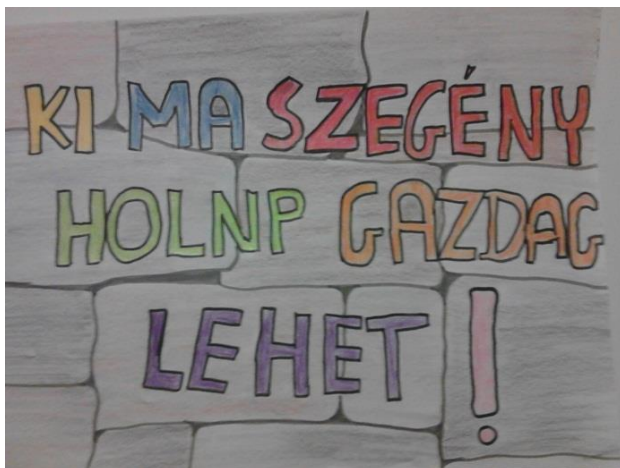 KI MA SZEGÉNY
HOLNP GAZDAG
LEHET!